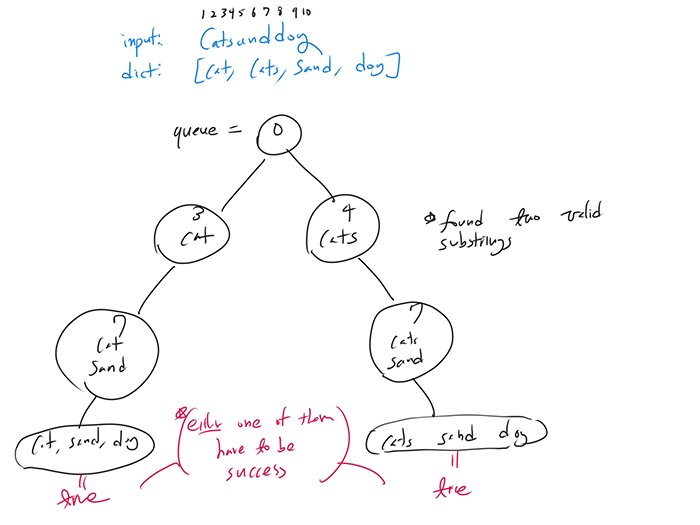 1 2 3 4 5 6 7 8 9 10
input: Catsanddog
dict: [Cat, Cats, Sand, dog]
queue = 0
3
cat
4
Cats
* found two valid
substrings
7
Cat
Sand
7
Cats
sand
* either one of them
have to be
success
Cat, sand, dog
Cats sand dog
true
true